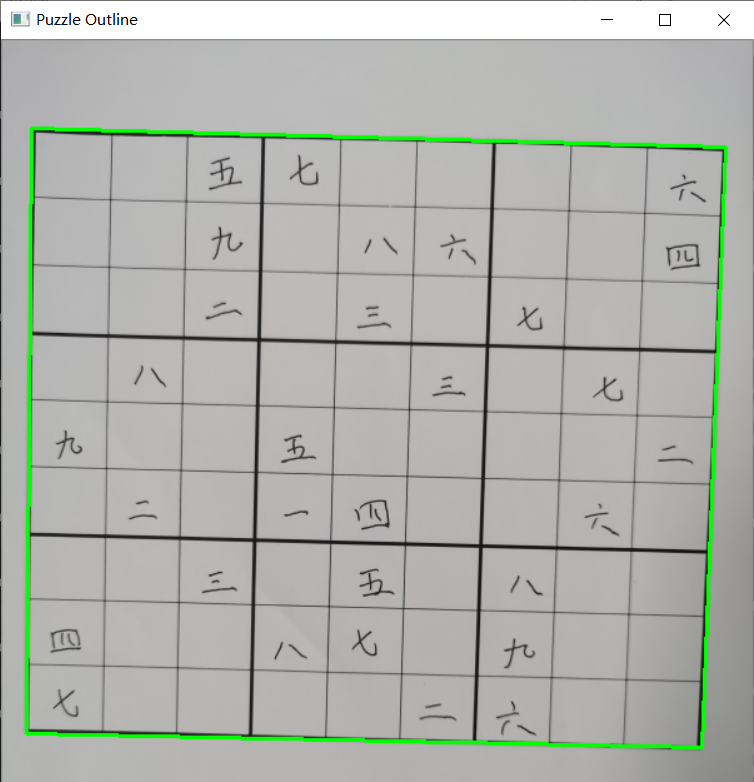 Puzzle Outline
五 七 六
九 八 六 四
二 三 七
八 三 七
九 五 二
二 一 四 六
三 五 八
四 八 七 九
七 二 六